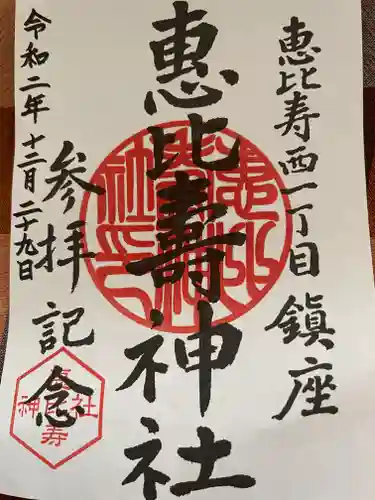 恵比寿西一丁目鎮座
恵比壽神社
参拝記念
令和二年十二月二十九日
恵比
神社
寿